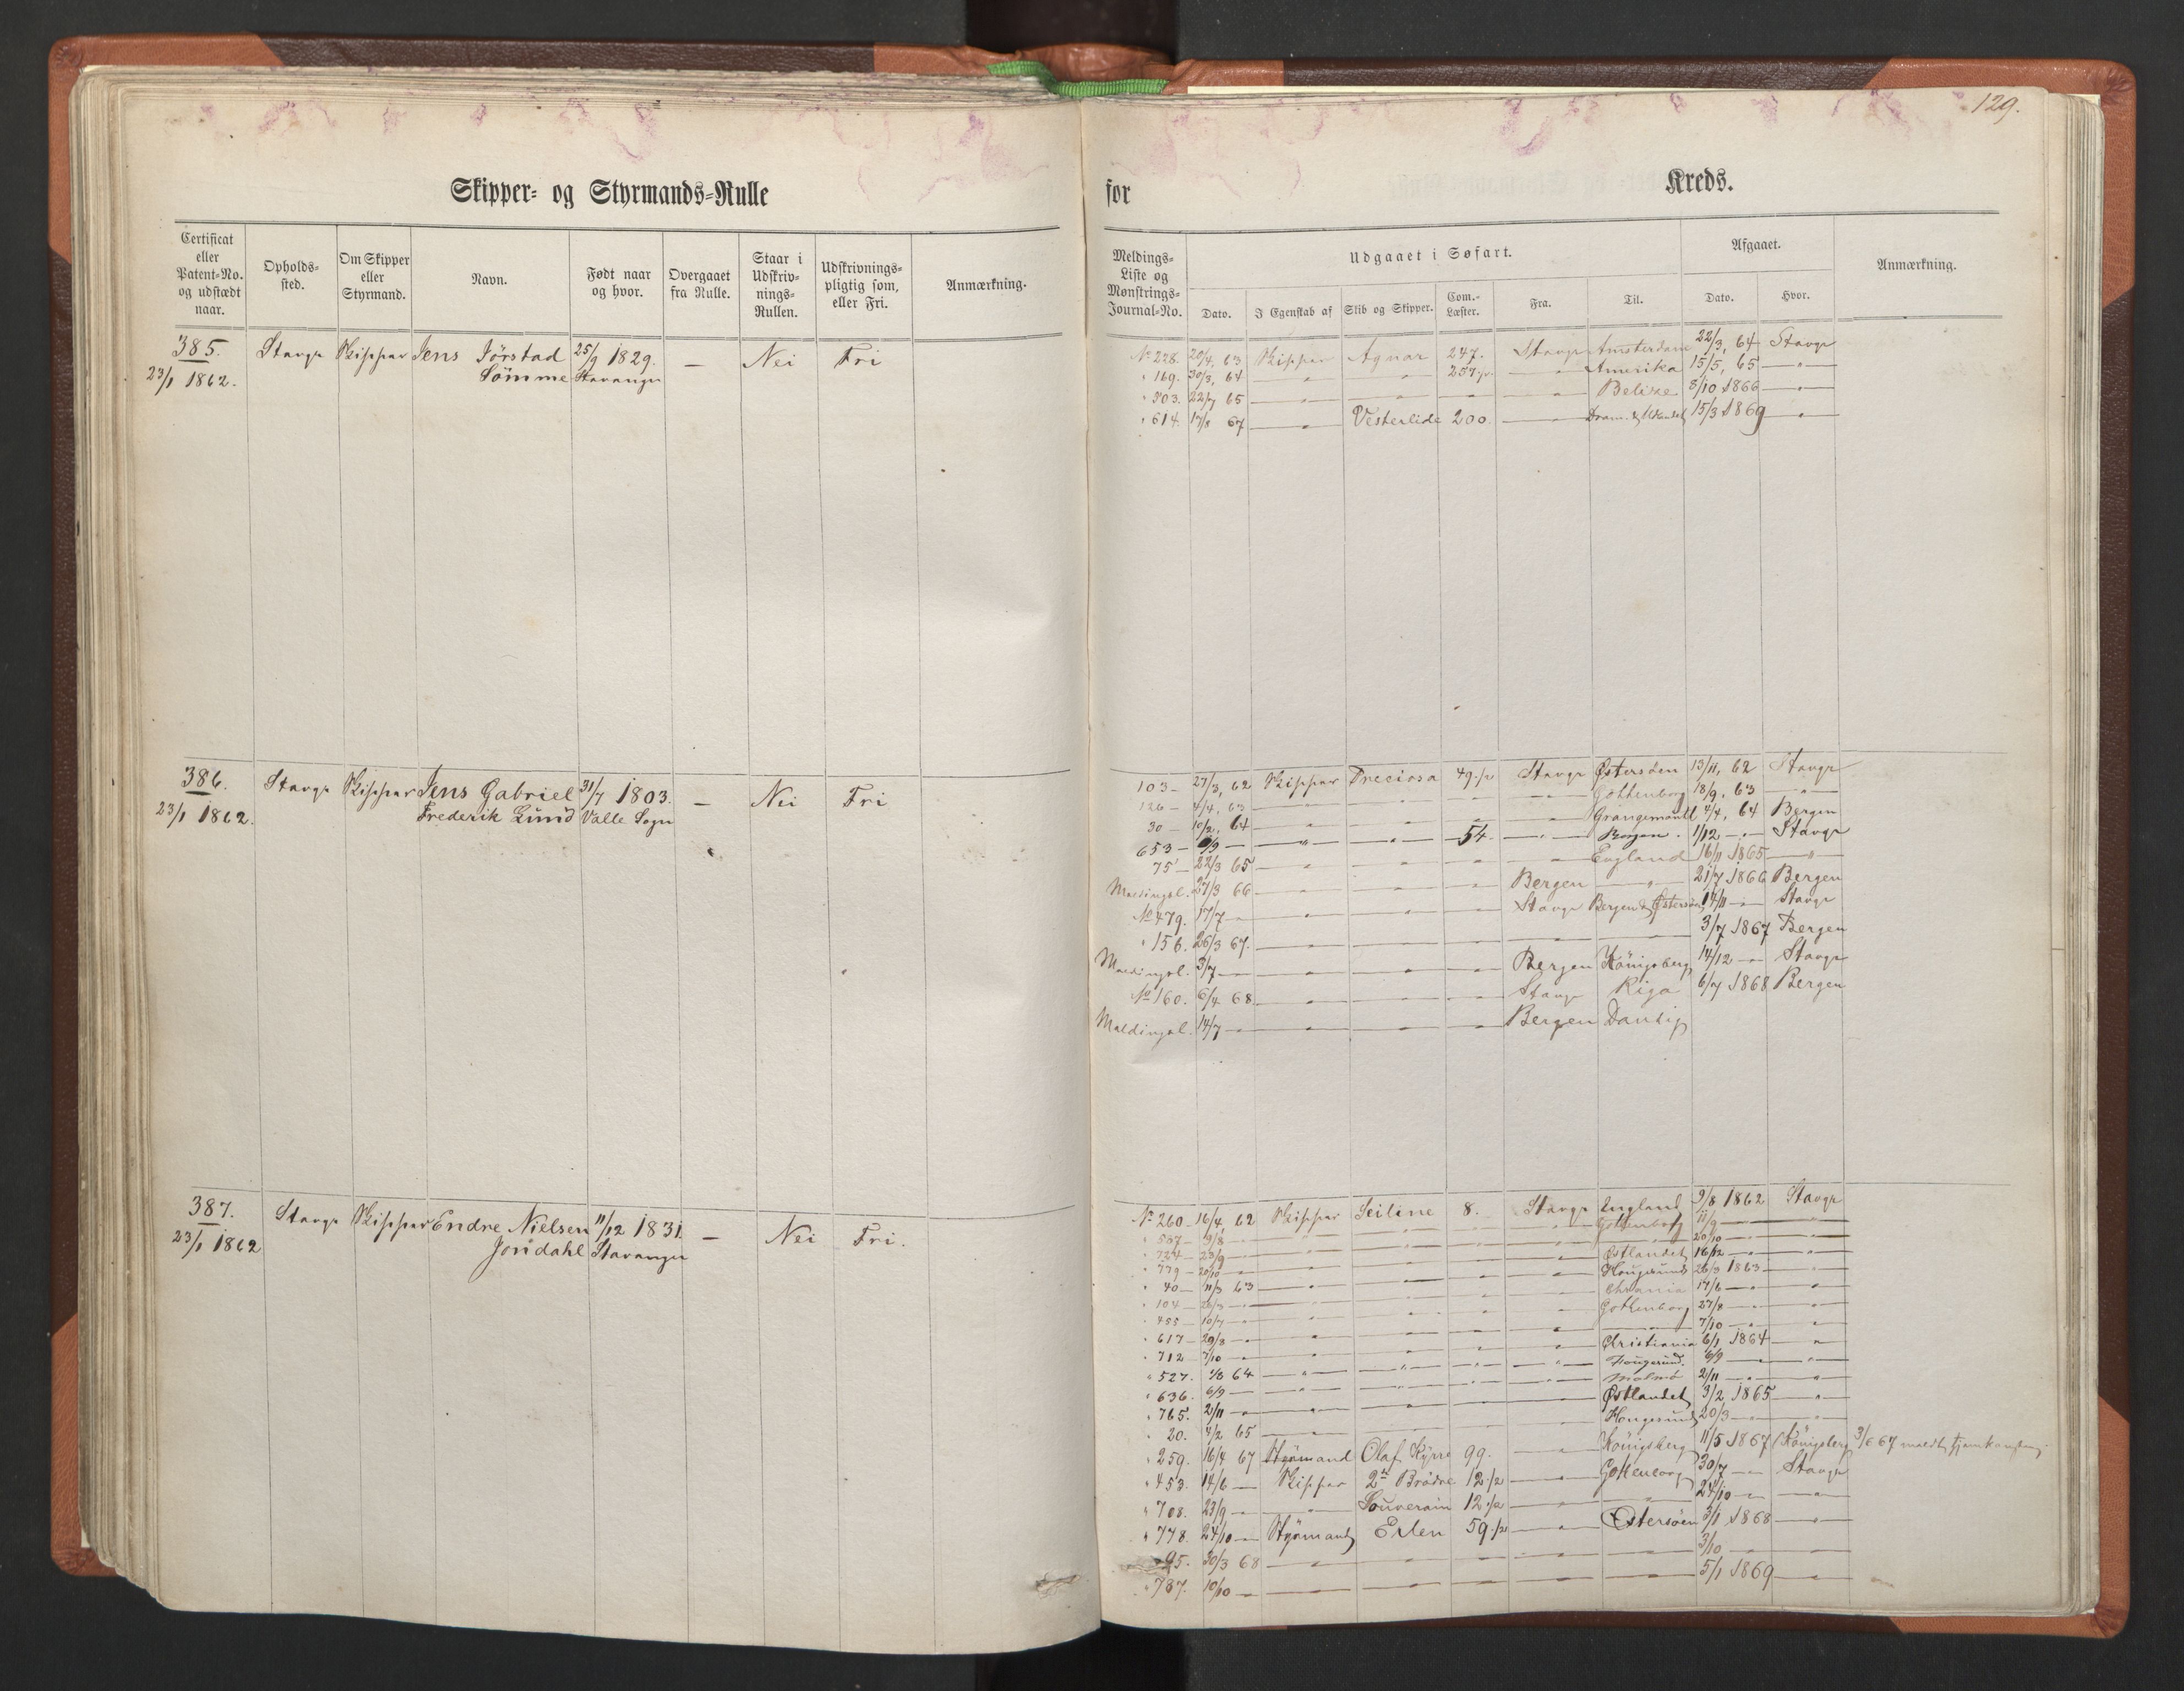 129.
Skipper- og Styrmands-Rulle
Certificat eller Patent-No. og udstædt naar.
Opholds-sted.
Om Skipper eller Styrmand.
Navn.
Født naar og hvor.
Overgaaet fra Rulle.
Staar i Udskriv-nings-Rullen.
Udskrivnings-pligtig som, eller Fri.
Anmærkning.
385. Stavgr Skipper Jens Jörstad 25/9 1829. — Nei Fri
23/1 1862. Sömme Stavanger
386. Stavgr Skipper Jens Gabriel 31/7 1803. — Nei Fri
23/1 1862. Frederik Lund Valle Sogn
387. Stavgr Skipper Endre Nielsen 11/12 1831. — Nei Fri.
23/1 1862 Jorüdahl Stavanger
for Kreds.
Meldings-Liste og Mønstrings-Journal-No.
Udgaaet i Søfart.
Dato.
I Egenskab af
Skib og Skipper.
Com.-Læster.
Fra.
Til.
Afgaaet.
Dato.
Hvor.
Anmærkning.
No 228. 20/4, 63 Skipper Agnar 247. Stavgr Amsterdam 22/3, 64 Stavgr
" 169. 30/3, 64 — " — " 257 — " — Amerika 15/5, 65 — " —
" 503. 22/7 65 — " — " — " — Belize 8/10 1866 — " —
" 614. 17/8 67 — " — Vesterlide 200 — " — 15/3 1869 — " —
103 — 27/3, 62 Skipper Preciosa 49 1/2 Stavgr Østersøen 13/11, 62 Stavgr
126 — 4/4, 63 — " — " — " — " — Gottenborg 18/9, 63 — " —
30 — 10/2, 64 — " — " — " — " — Grangemouth 4/4, 64 Bergen
653 — 9/9 — " — " — 54. — " — Bergen. 1/12 — " — Stavgr
75 — 22/3 65 — " — " — " — " — England 16/11 1865 — " —
Meldingsl. 27/3 66 — " — " — " — Bergen — " — 21/7 1866 Bergen
No 479. 17/7 — " — " — " — " — Stavgr Bergen & Østersøen 14/11 — " — Stavgr
" 156. 26/3 67. — " — " — " — " — " — 3/7 1867 Bergen
Meldingsl. 3/7 — " — " — " — " — Bergen Königsberg 14/12 — " — Stavgr
No 160. 6/4 68 — " — " — " — Stavgr Riga 6/7 1868 Bergen
Meldingsl. 14/7 — " — " — " — " — Bergen Dantzig
No 260 — 16/4, 62 Skipper Seiline 8. Stavgr England 9/8 1862 Stavgr
" 567 — 9/8 — " — " — " — " — Gottenborg 11/9 — " — " —
" 724 — 23/9 — " — " — " — " — " — 20/10 — " — " —
" 779 — 20/10 — " — " — " — " — Østlandet 16/12 — " — " —
" 40 — 11/3 63 — " — " — " — " — Hougesund 26/3 1863 — " —
" 104 — 28/3 — " — " — " — " — Chrania 17/6 — " — " —
" 455 — 10/7 — " — " — " — " — Gothenborg 27/8 — " — " —
" 617 — 29/8 — " — " — " — " — " — 7/10 — " — " —
" 712 — 7/10 — " — " — " — " — Christiania 6/1 1864 — " —
" 527. 1/8 64 — " — " — " — " — Hougesund. 6/9 — " — " —
" 636. 6/9 — " — " — " — " — Malmö 2/11 — " — " —
" 765. 2/11 — " — " — " — " — Østlandet 3/2 1865 — " —
" 20. 4/2 65 — " — " — " — " — Hougesund 20/3 — " — " —
" 259. 16/4 67 Styrmand Olaf Kyrre 99. — " — Königsberg 11/5 1867 (Königsberg 3/6 67 meldt
" 453. 14/6 — Skipper 2de Brødre 12 1/2 — " — Gottenborg 30/7 — " — Stavgr
" 708. 23/9 — " — Souverain 12 1/2 — " — " — 24/10 — " — " —
" 778. 24/10 — Styrmand Erlen 59 1/2 — " — Østersøen 3/1 1868 — " —
" 95. 30/3 68 — " — " — " — " — " — 3/10 — " — " —
" 787. 10/10 — " — " — " — " — " — 5/1 1869 — " —